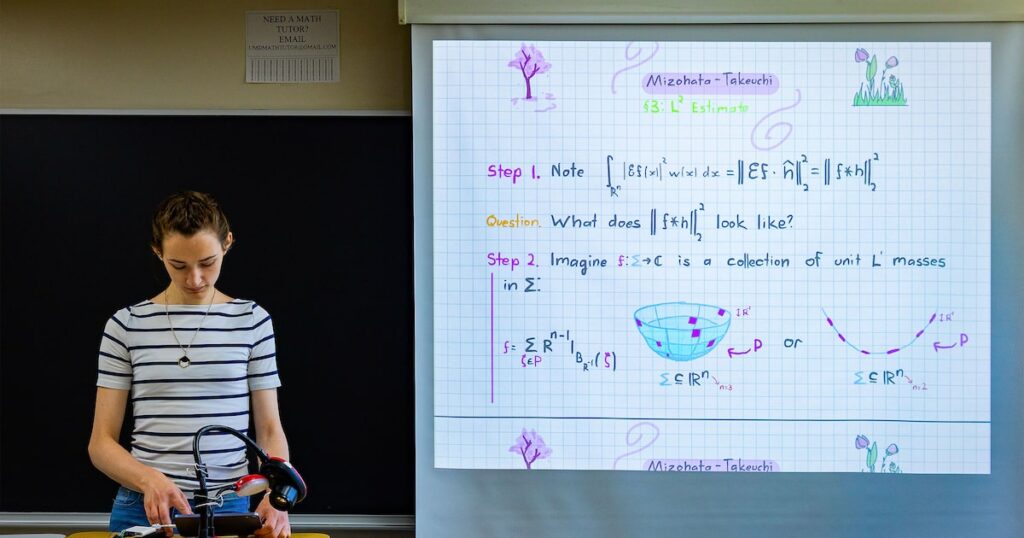 NEED A MATH
TUTOR?
EMAIL
UMDMATHTUTOR@GMAIL.COM
Mizohata-Takeuchi
§3: L² Estimate
Step 1. Note ∫_{ℝⁿ} |Ɛf(x)|² w(x) dx = ‖Ɛf · ĥ‖₂² = ‖f*h‖₂²
Question. What does ‖f*h‖₂² look like?
Step 2. Imagine f: Σ→ℂ is a collection of unit L¹ masses
in Σ:
f = Σ_{ζ∈P} R^{n-1} 1_{B_{R⁻¹}(ζ)}
IR⁻¹
P
or
IR⁻¹
P
Σ ⊆ ℝⁿ n=3
Σ ⊆ ℝⁿ n=2
Mizohata-Takeuchi